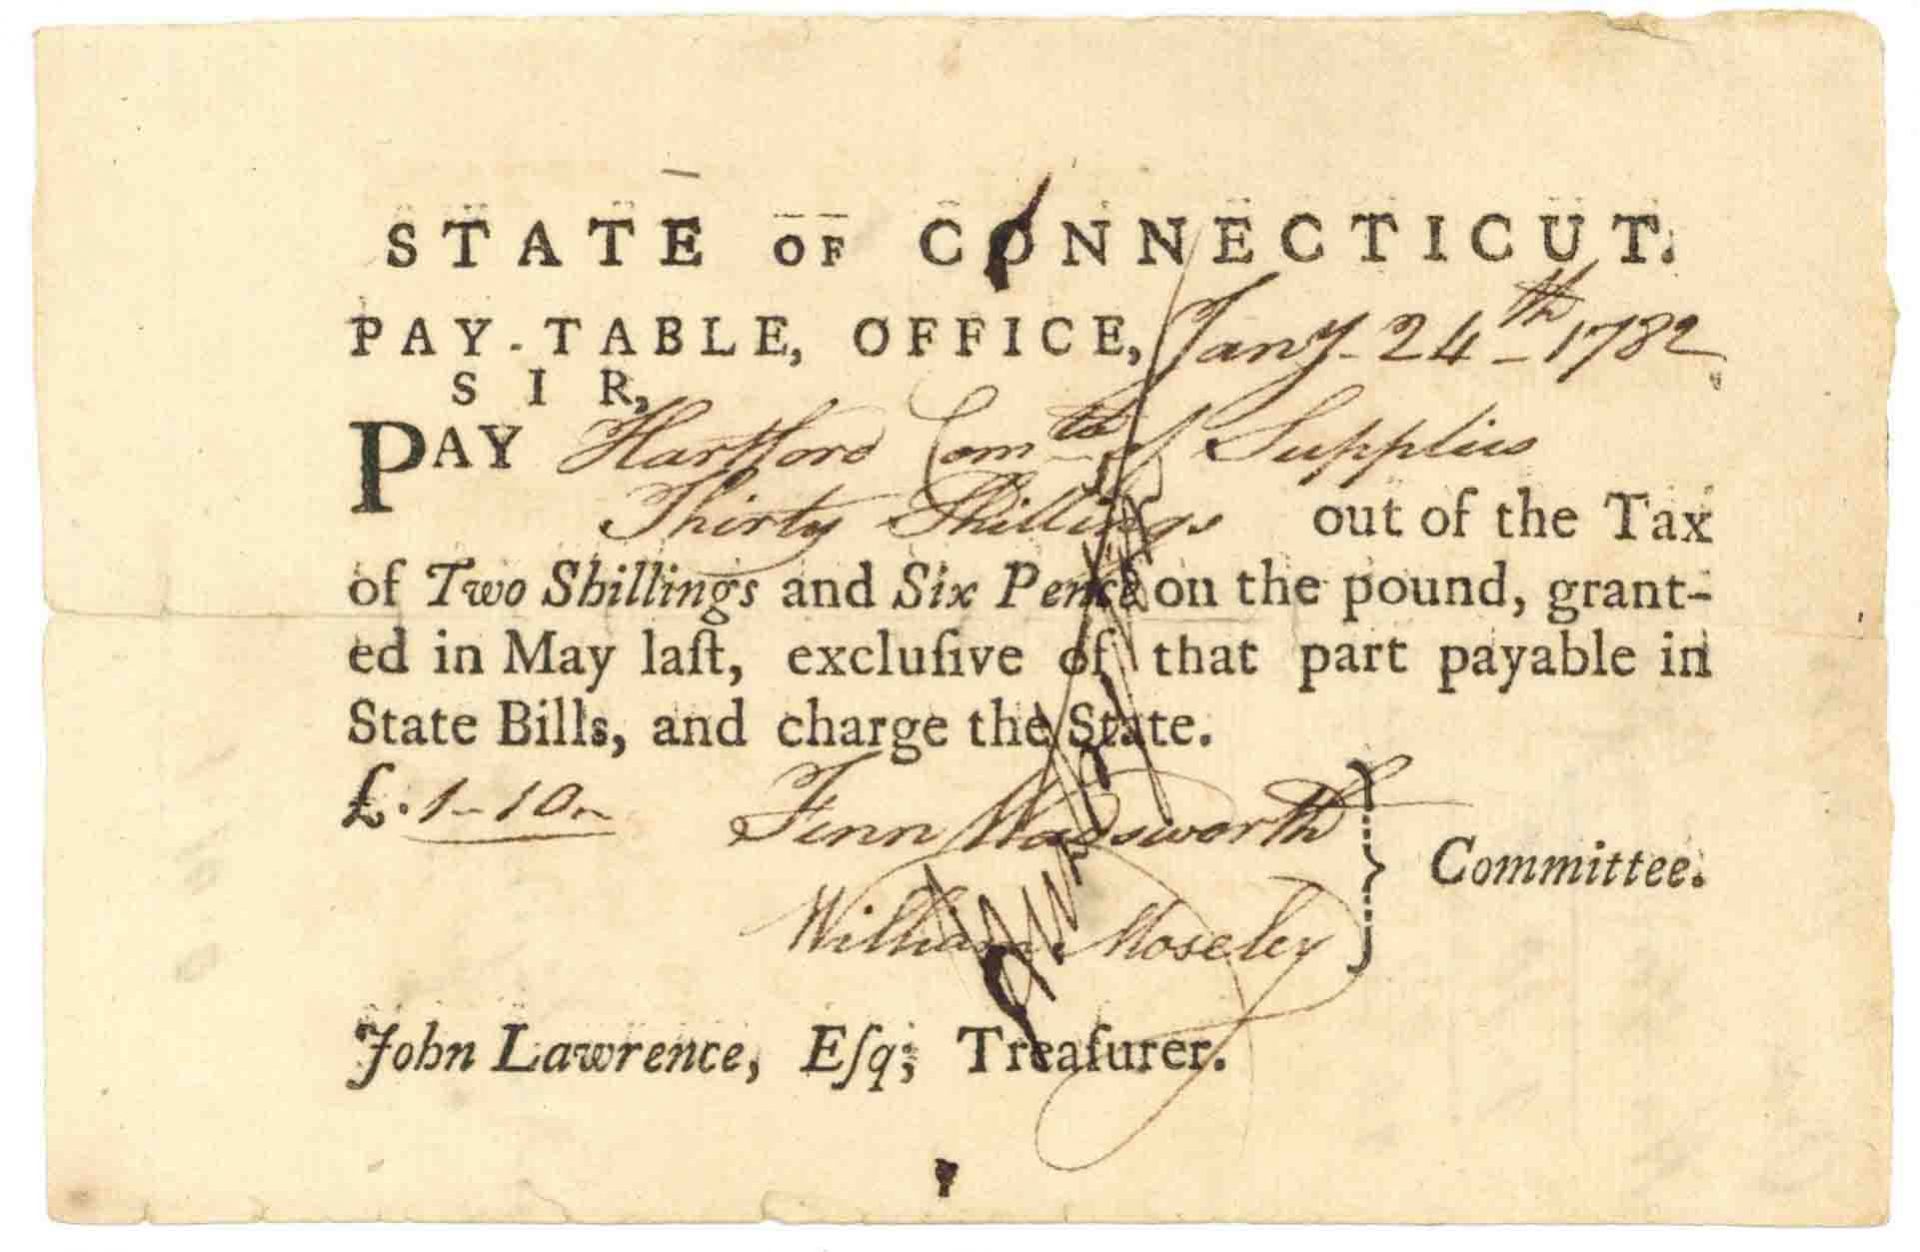 STATE OF CONNECTICUT.
PAY-TABLE, OFFICE, Jany. 24th 1782
SIR,
PAY Hartford Comtee of Supplies
Thirty Shillings out of the Tax
of Two Shillings and Six Pence on the pound, grant-
ed in May laſt, excluſive of that part payable in
State Bills, and charge the State.
£. 1-10-
Fenn Wadsworth
William Moseley
} Committee.
John Lawrence, Eſq; Treaſurer.